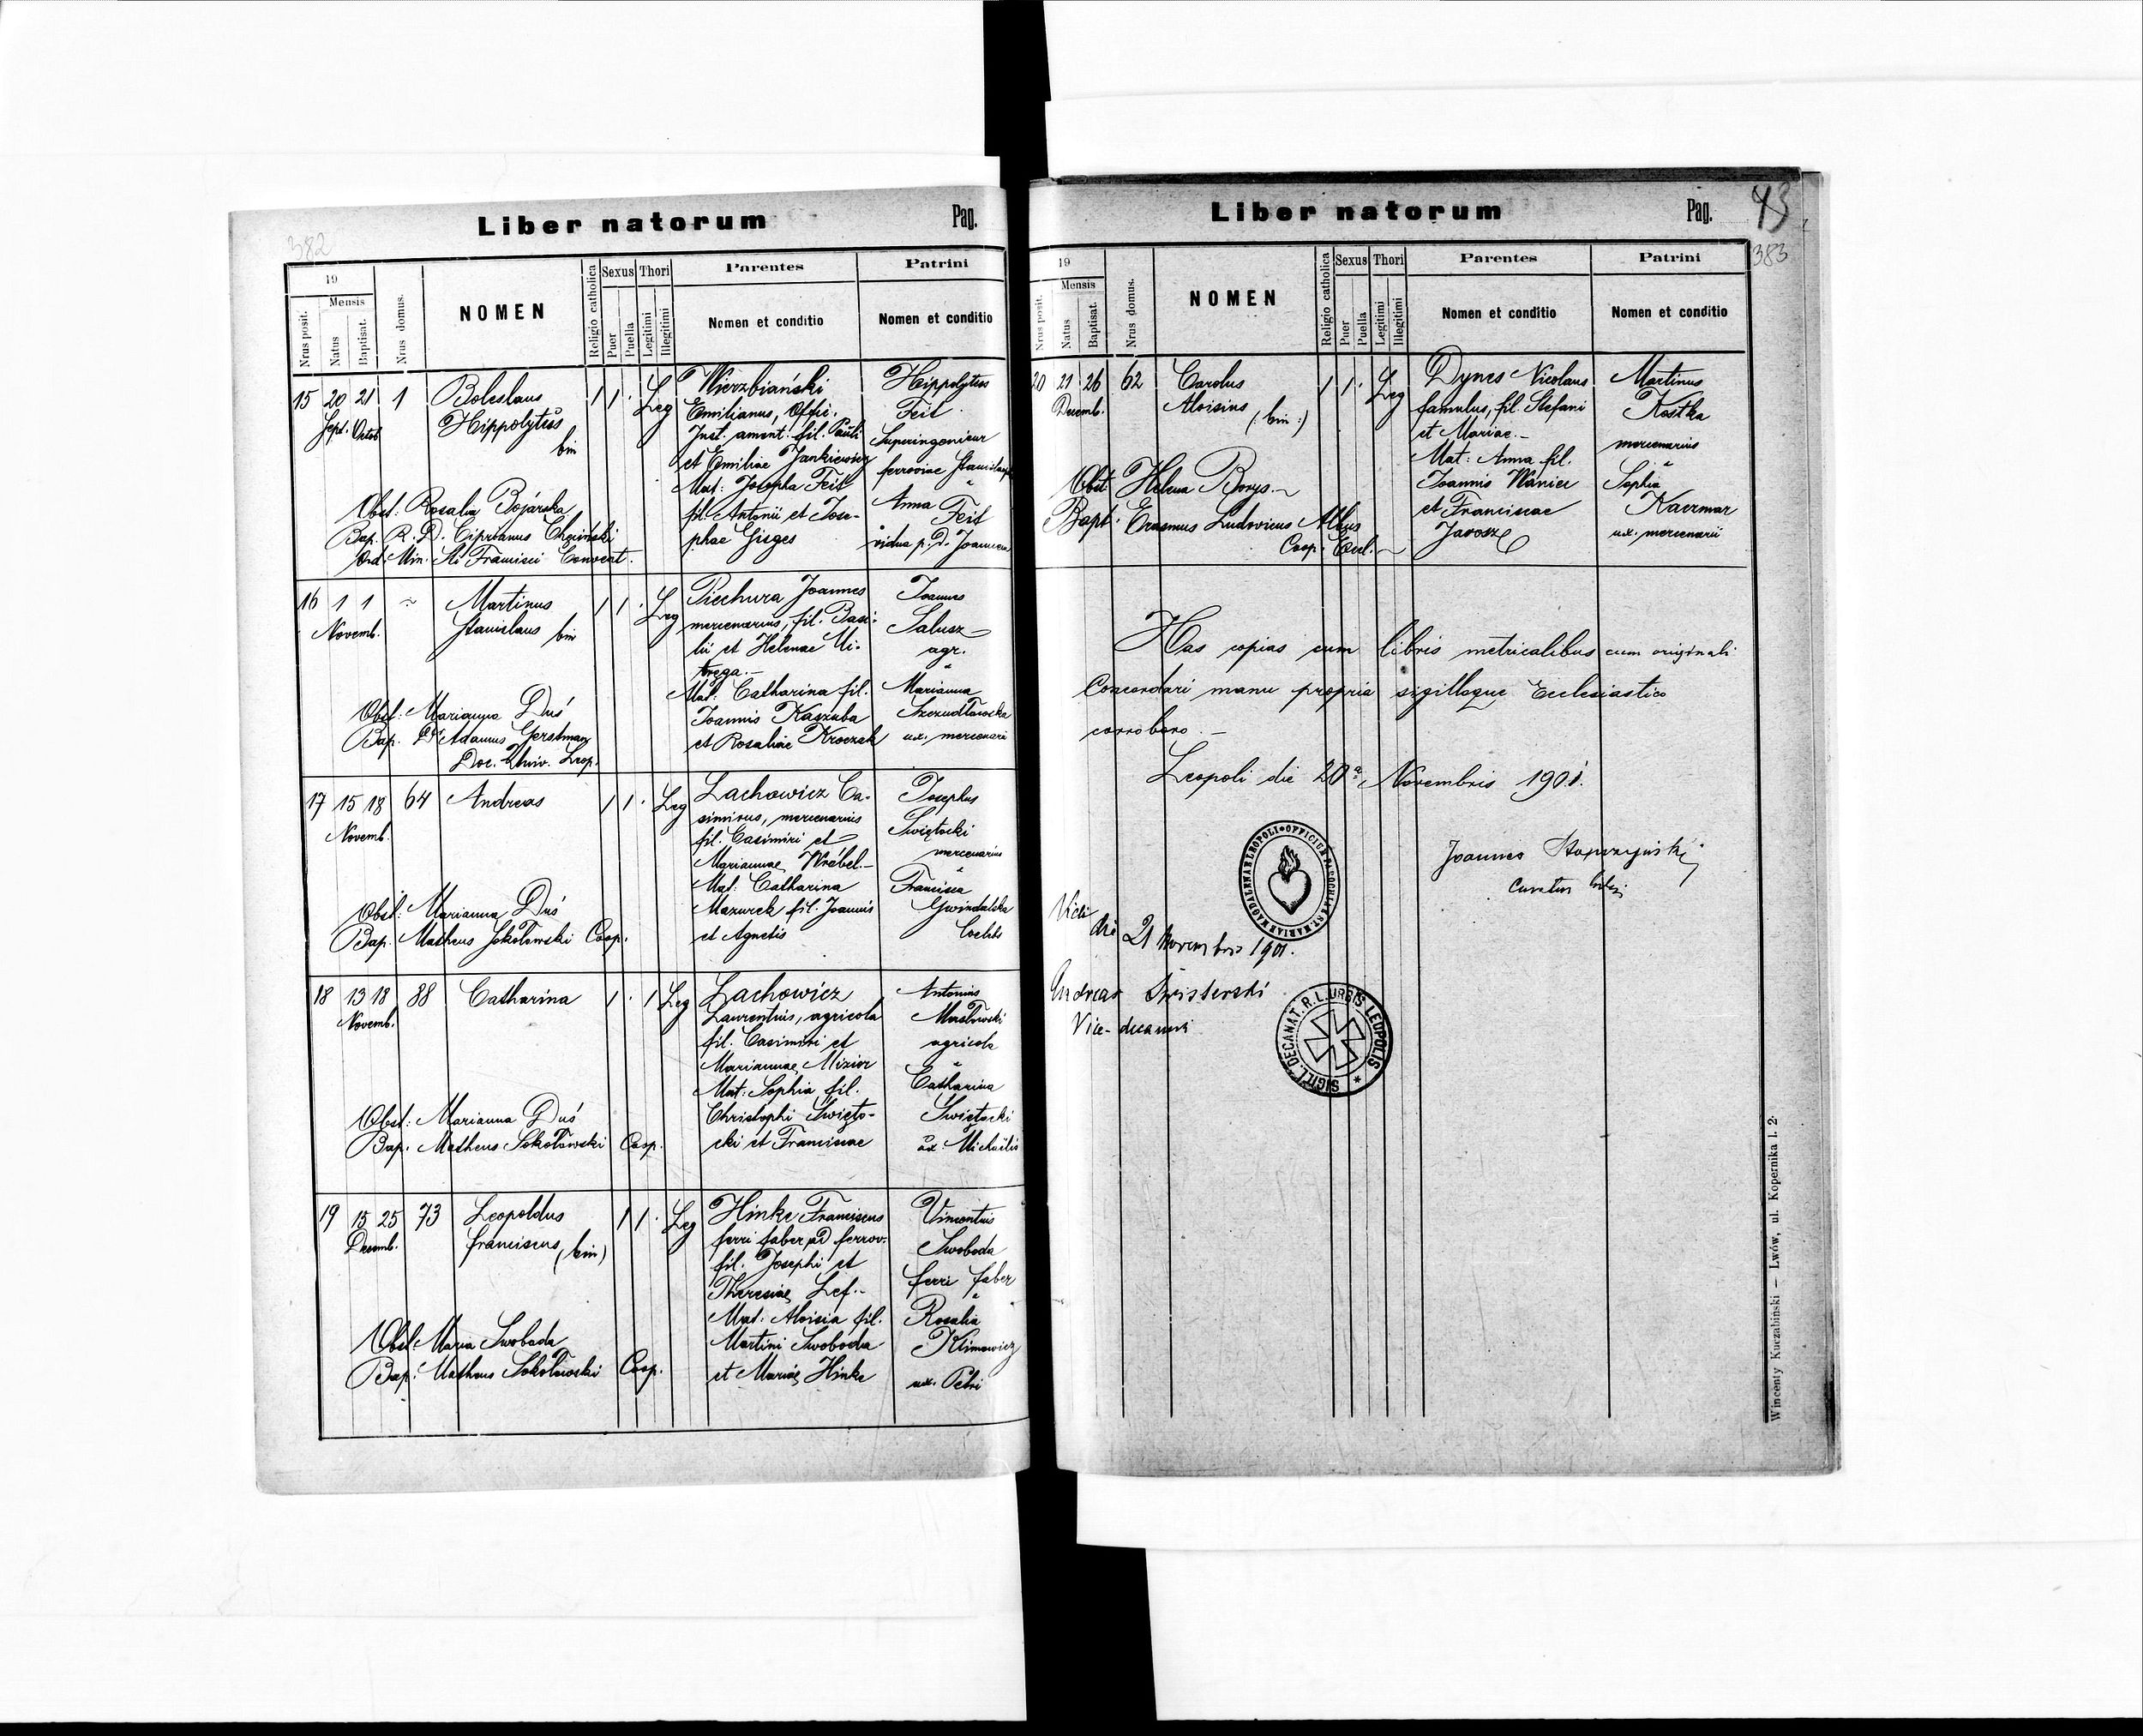 Liber natorum Pag.
382
19
Mensis
Nrus posit.
Natus
Baptisat.
Nrus domus.
NOMEN
Religio catholica
Sexus
Puer
Puella
Thori
Legitimi
Illegitimi
Parentes
Nomen et conditio
Patrini
Nomen et conditio
15 20 21 1 Boleslaus 1 1 . Leg Wierzbiański Hippolytus
Sept. Octob Hippolytus Emilianus, Offic. Feit
bin Inst. ament. fil. Pauli Superingenieur
et Emiliae Jankiewicz ferroviae
Mat: Josepha Feit "
Obst: Rosalia Bojarska fil. Antonii et Jose- Anna Feit
Bap. R. D. Ciprianus phae Gisges vidua p. D. Joannem
Ord. Min. Sti Francisci Convent.
16 1 1 ~ Martinus 1 1 . Leg Piechura Joannes Joannes
Novemb. Stanislaus bin mercenarius, fil. Basi- Salusz
lii et Helenae Mi- agr.
tręga.- "
Mat. Catharina fil. Marianna
Obst: Marianna Duś Joannis Kaszuba Szczudłowska
Bap. Dr Adamus Gerstman et Rosaliae Kroczak ux. mercenarii
Doc. Univ. Leop.
17 15 18 64 Andreas 1 1 . Leg Lachowicz Ca- Josephus
Novemb. simirus, mercenarius Swiętocki
fil. Casimiri et mercenarius
Mariannae Wróbel.- "
Mat: Catharina Francisca
Obst: Marianna Duś Mazurek fil. Joannis
Bap. Matheus Sokołowski Coop. et Agnetis
18 13 18 88 Catharina 1 . 1 Leg Lachowicz Antonius
Novemb. Laurentius, agricola Masłowski
fil. Casimiri et agricola
Mariannae Mizior "
Mat: Sophia fil. Catharina
Obst: Marianna Duś Christophi Swięto- Swiętocki
Bap. Matheus Sokołowski Coop. cki et Franciscae ux. Michaelis
19 15 25 73 Leopoldus 1 1 . Leg Hinke Franciscus Vincentius
Decemb. Franciscus (bin) ferri faber ad ferrov. Swoboda
fil. Josephi et ferri faber
Theresiae Lef.- "
Mat. Aloisia fil. Rosalia
Obst: Maria Swoboda Martini Swoboda Klimowicz
Bap. Matheus Sokołowski Coop. et Mariae Hinke ux. Petri
Liber natorum Pag. 43
383
19
Mensis
Nrus posit.
Natus
Baptisat.
Nrus domus.
NOMEN
Religio catholica
Sexus
Puer
Puella
Thori
Legitimi
Illegitimi
Parentes
Nomen et conditio
Patrini
Nomen et conditio
20 21 26 62 Carolus 1 1 . Leg Dynes Nicolaus Martinus
Decemb. Aloisius (: bin :) famulus, fil. Stefani Kostka
et Mariae.- mercenarius
Mat: Anna fil. "
Obst: Helena Borys.~ Joannis Wanier Sophia
Bapt: Erasmus Ludovicus Albus et Franciscae Kaermar
Coop. Eccl. Jarosz ux. mercenarii
Has copias cum libris metricalibus cum originali
Concordari manu propria sigilloque Ecclesiastico
corroboro.-
Leopoli die 20ª Novembris 1901.
Joannes
OFFICIUM PAROCHIAE ST. MARIAE MAGDALENAE LEOPOLI
Vidi
die 21 Novembris 1901.
Andreas
Vice-decanus
SIGILL. DECANAT. R. L. URBIS LEOPOLIS *
Wincenty Kuczabiński — Lwów, ul. Kopernika l. 2.